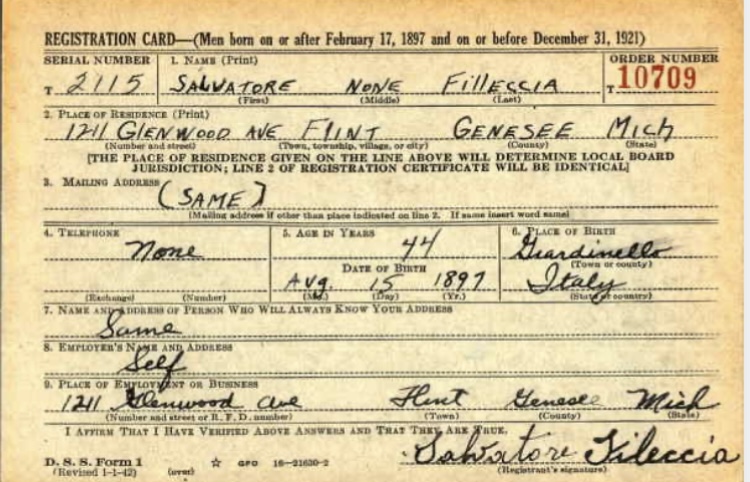 REGISTRATION CARD—(Men born on or after February 17, 1897 and on or before December 31, 1921)
SERIAL NUMBER 1. NAME (Print) ORDER NUMBER
T 2115 SALVATORE NONE FILLECCIA T 10709
(First) (Middle) (Last)
2. PLACE OF RESIDENCE (Print)
1211 GLENWOOD AVE FLINT GENESEE MICH
(Number and street) (Town, township, village, or city) (County) (State)
[THE PLACE OF RESIDENCE GIVEN ON THE LINE ABOVE WILL DETERMINE LOCAL BOARD
JURISDICTION; LINE 2 OF REGISTRATION CERTIFICATE WILL BE IDENTICAL]
3. MAILING ADDRESS
(SAME)
[Mailing address if other than place indicated on line 2. If same insert word same]
4. TELEPHONE 5. AGE IN YEARS 6. PLACE OF BIRTH
None 44 Giardinello
DATE OF BIRTH (Town or county)
Aug. 15 1897 Italy
(Exchange) (Number) (Mo.) (Day) (Yr.) (State or country)
7. NAME AND ADDRESS OF PERSON WHO WILL ALWAYS KNOW YOUR ADDRESS
Same
8. EMPLOYER'S NAME AND ADDRESS
Self
9. PLACE OF EMPLOYMENT OR BUSINESS
1211 Glenwood Ave Flint Genesee Mich
(Number and street or R. F. D. number) (Town) (County) (State)
I AFFIRM THAT I HAVE VERIFIED ABOVE ANSWERS AND THAT THEY ARE TRUE.
Salvatore Fileccia
D. S. S. Form 1
(Revised 1-1-42) (over) ☆ GPO 16—21630-2 (Registrant's signature)